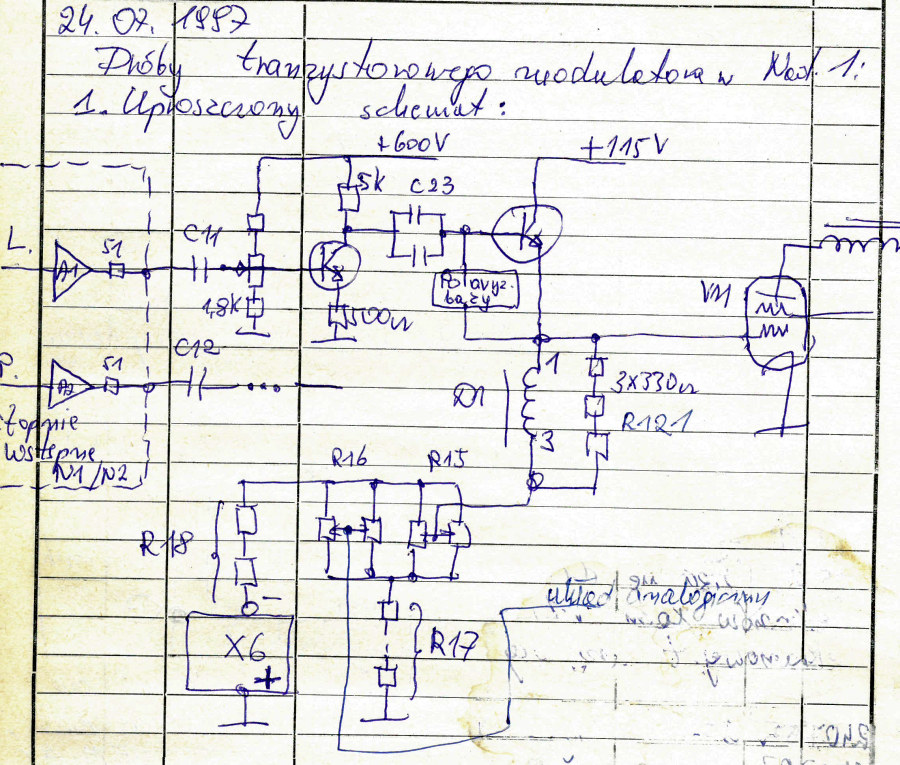 24. 07. 1997
Próby tranzystorowego modulatora w Nad. 1:
1. Uproszczony schemat:
+600V
+115V
5k
C23
L.
51
C11
A1
1,8k
100Ω
Polaryz.
bazy
VM
P.
51
C12
A2
Stopnie
wstępne
N1/N2
1
D1
3
3x330Ω
R121
R16
R15
R18
−
X6
+
R17
układ analogiczny